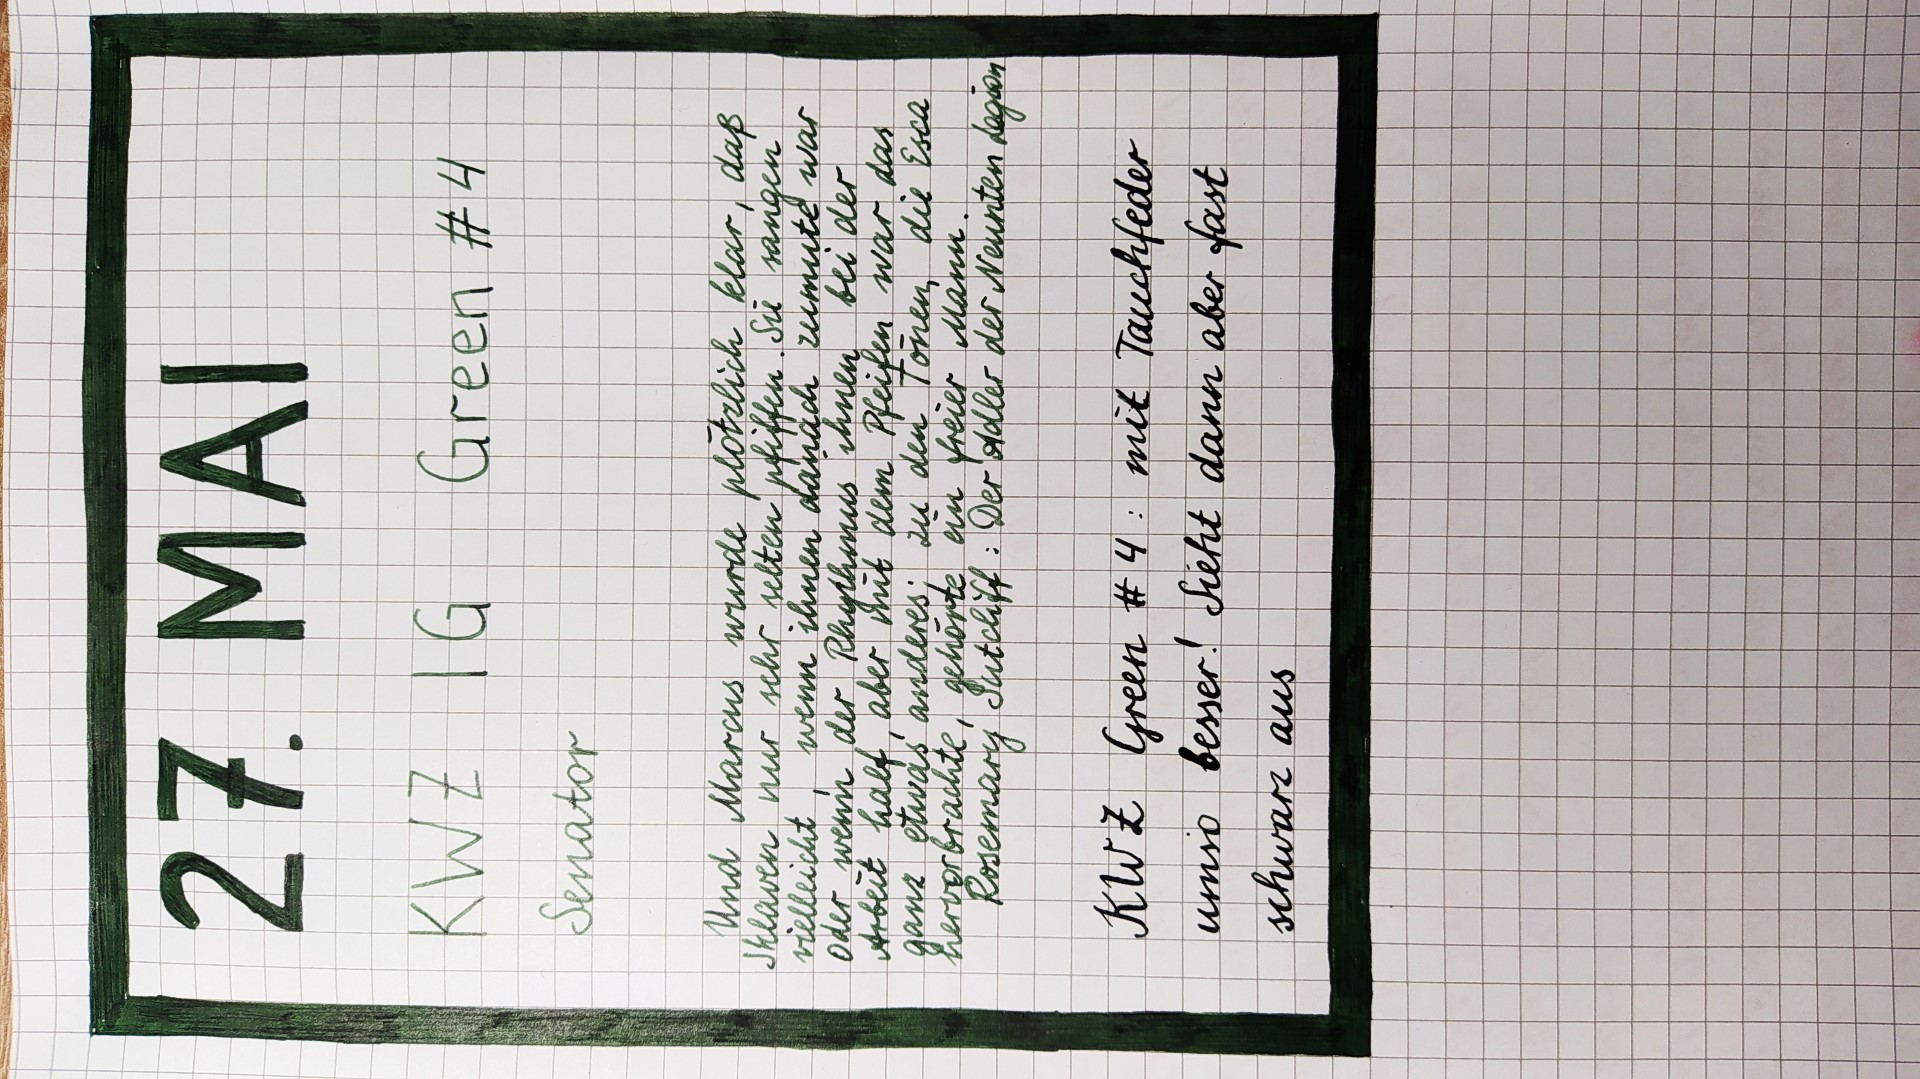 27. MAI
KWZ IG Green #4
Senator
Und Marcus wurde plötzlich klar, daß
Sklaven nur sehr selten pfiffen. Sie sangen
vielleicht, wenn ihnen danach zumute war
oder wenn der Rhythmus ihnen bei der
Arbeit half, aber mit dem Pfeifen war das
ganz etwas anderes; zu den Tönen, die Esca
hervorbrachte, gehörte ein freier Mann.
Rosemary Sutcliff: Der Adler der Neunten Legion
KWZ Green #4: mit Tauchfeder
umso besser! Sieht dann aber fast
schwarz aus